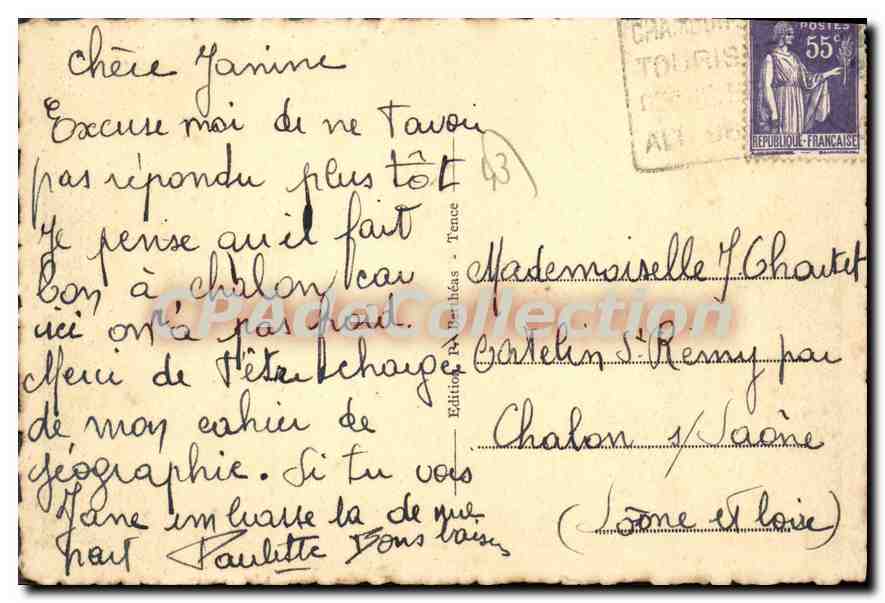 chère Janine
Excuse moi de ne t'avoir
pas répondu plus tôt
Je pense qu'il fait
bon à châlon car
ici on n'a pas froid.
Merci de t'être chargé
de mon cahier de
géographie. Si tu vois
Jane embrasse la de ma
part Paulette Bons baisers
43
Edition P. Berthéas - Tence
TOURIS
ALT
POSTES
55c
REPUBLIQUE-FRANÇAISE
Mademoiselle J. Chartet
Catelin St Rémy par
Chalon s/ Saône
(Saône et loire)
CPAdeCollection